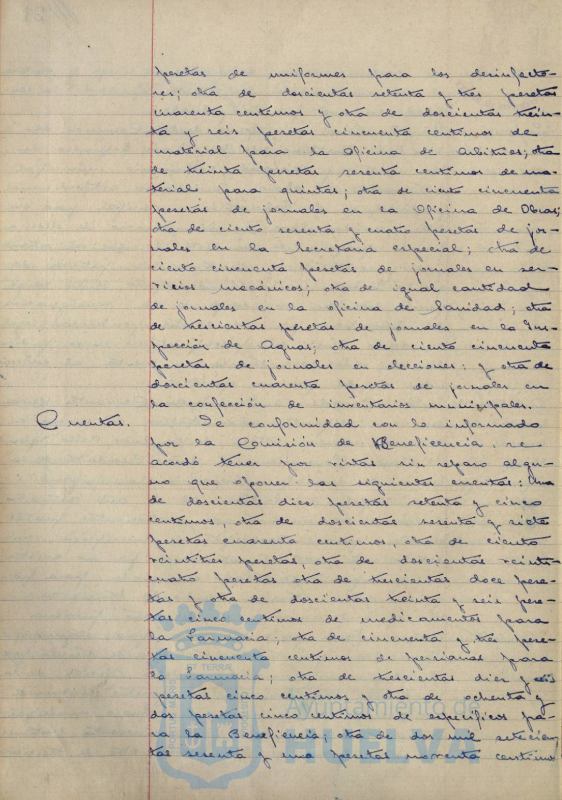 pesetas de uniformes para los desinfecto-
res; otra de doscientas setenta y tres pesetas
cuarenta centimos y otra de doscientas trein-
ta y seis pesetas cincuenta centimos de
material para la Oficina de Arbitrios; otra
de treinta pesetas sesenta centimos de ma-
terial para quintas; otra de ciento cincuenta
pesetas de jornales en la Oficina de Obras;
otra de ciento sesenta y cuatro pesetas de jor-
nales en la Secretaria especial; otra de
ciento cincuenta pesetas de jornales en ser-
vicios mecánicos; otra de igual cantidad
de jornales en la oficina de Sanidad; otra
de trescientas pesetas de jornales en la Ins-
pección de Aguas; otra de ciento cincuenta
pesetas de jornales en elecciones: y otra de
doscientas cuarenta pesetas de jornales en
la confección de inventarios municipales.
Cuentas. De conformidad con lo informado
por la Comisión de Beneficencia, se
acordó tener por vistas sin reparo algu-
no que oponer las siguientes cuentas: Una
de doscientas diez pesetas setenta y cinco
centimos, otra de doscientas sesenta y siete
pesetas cuarenta centimos, otra de ciento
veintitres pesetas, otra de doscientas veinti-
cuatro pesetas otra de trescientas doce pese-
tas y otra de doscientas treinta y seis pese-
tas cinco centimos de medicamentos para
la Farmacia; otra de cincuenta y tres pese-
tas cincuenta centimos de persianas para
la Farmacia; otra de trescientas diez y seis
pesetas cinco centimos y otra de ochenta y
dos pesetas cinco centimos de especificos pa-
ra la Beneficencia; otra de dos mil setecien
tas sesenta y una pesetas noventa centimos
Ayuntamiento de
HUELVA